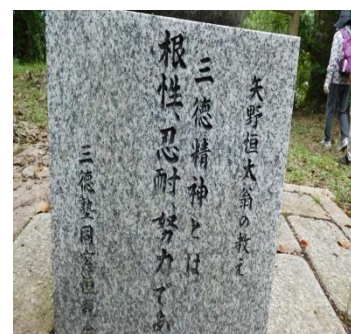 矢野恒太翁の教え
三徳精神とは
根性、忍耐、努力であ
三徳塾同窓